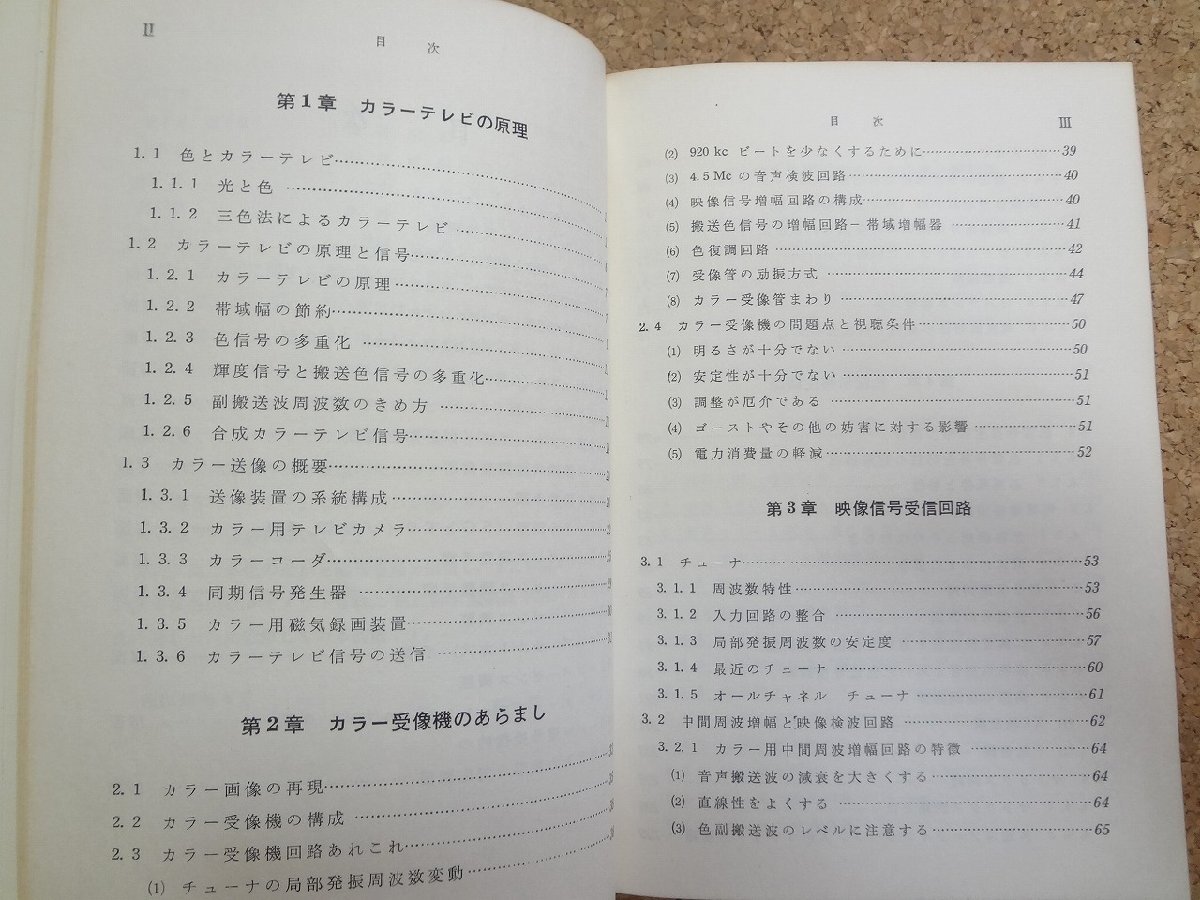 II
目 次
第1章 カラーテレビの原理
1.1 色とカラーテレビ
1.1.1 光と色
1.1.2 三色法によるカラーテレビ
1.2 カラーテレビの原理と信号
1.2.1 カラーテレビの原理
1.2.2 帯域幅の節約
1.2.3 色信号の多重化
1.2.4 輝度信号と搬送色信号の多重化
1.2.5 副搬送波周波数のきめ方
1.2.6 合成カラーテレビ信号
1.3 カラー送像の概要
1.3.1 送像装置の系統構成
1.3.2 カラー用テレビカメラ
1.3.3 カラーコーダ
1.3.4 同期信号発生器
1.3.5 カラー用磁気録画装置
1.3.6 カラーテレビ信号の送信
第2章 カラー受像機のあらまし
2.1 カラー画像の再現
2.2 カラー受像機の構成
2.3 カラー受像機回路あれこれ
(1) チューナの局部発振周波数変動
目 次
III
(2) 920 kc ビートを少なくするために 39
(3) 4.5 Mc の音声検波回路 40
(4) 映像信号増幅回路の構成 40
(5) 搬送色信号の増幅回路－帯域増幅器 41
(6) 色復調回路 42
(7) 受像管の励振方式 44
(8) カラー受像管まわり 47
2.4 カラー受像機の問題点と視聴条件 50
(1) 明るさが十分でない 50
(2) 安定性が十分でない 51
(3) 調整が厄介である 51
(4) ゴーストやその他の妨害に対する影響 51
(5) 電力消費量の軽減 52
第3章 映像信号受信回路
3.1 チューナ 53
3.1.1 周波数特性 53
3.1.2 入力回路の整合 56
3.1.3 局部発振周波数の安定度 57
3.1.4 最近のチューナ 60
3.1.5 オールチャネル チューナ 61
3.2 中間周波増幅と映像検波回路 62
3.2.1 カラー用中間周波増幅回路の特徴 64
(1) 音声搬送波の減衰を大きくする 64
(2) 直線性をよくする 64
(3) 色副搬送波のレベルに注意する 65